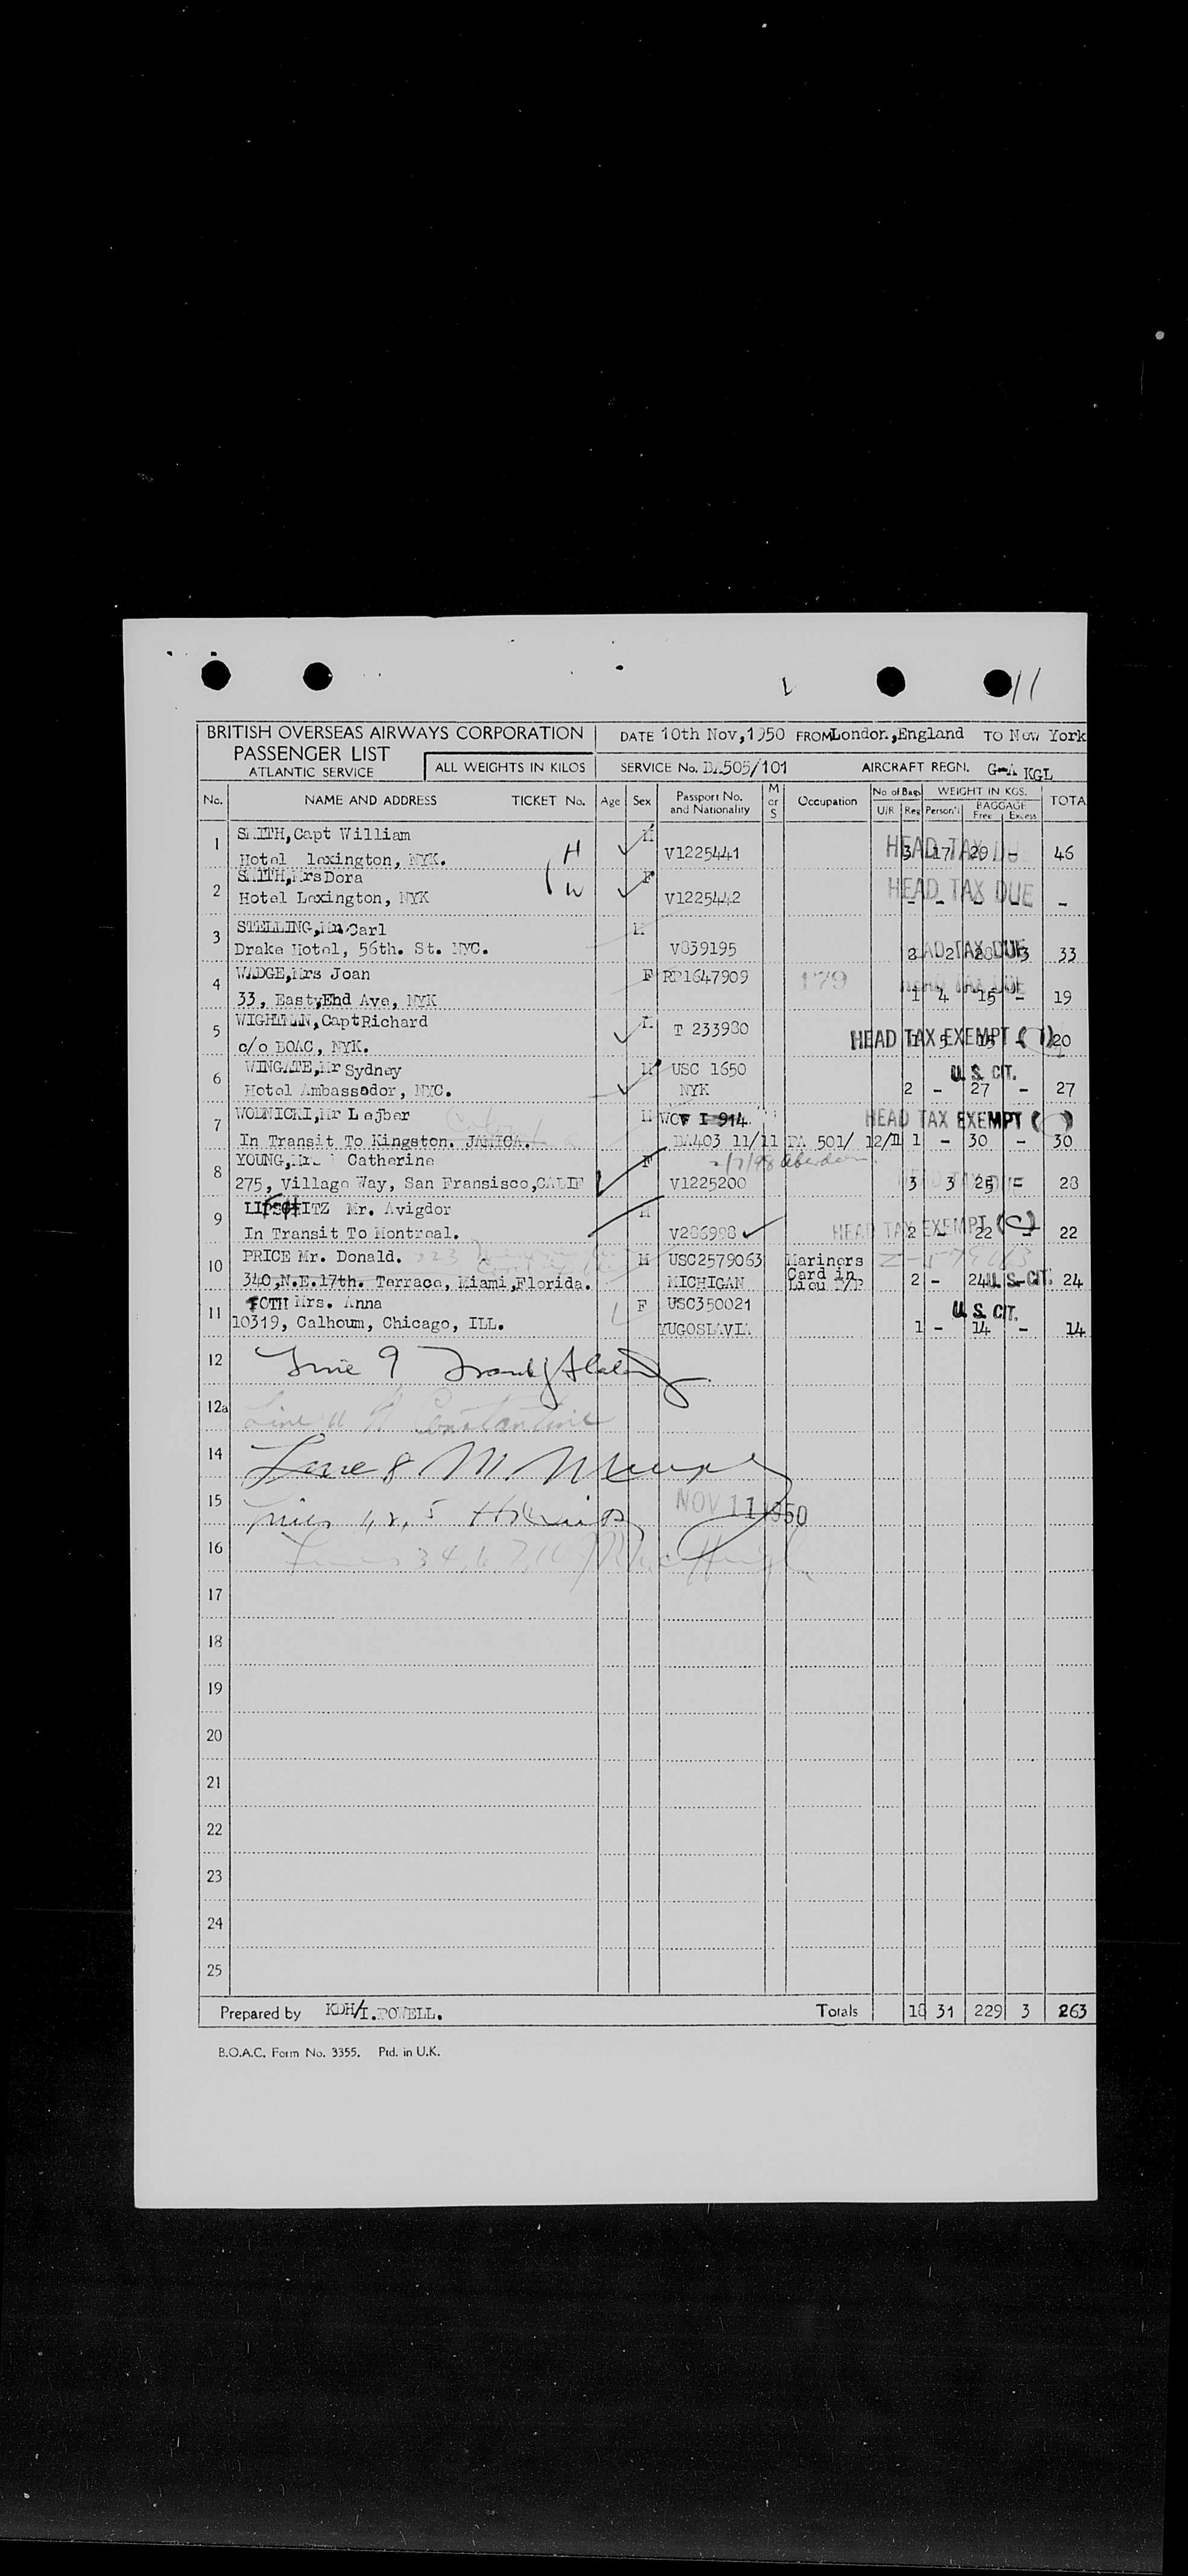 11
BRITISH OVERSEAS AIRWAYS CORPORATION
PASSENGER LIST
ATLANTIC SERVICE
ALL WEIGHTS IN KILOS
DATE 10th Nov,1950 FROM London.,England TO New York
SERVICE No. BA505/101 AIRCRAFT REGN. G-A KGL
No. NAME AND ADDRESS TICKET No. Age Sex Passport No. and Nationality M or S Occupation No of Bags U/R Reg WEIGHT IN KGS. Person'l BAGGAGE Free Excess TOTA
1 SMITH,Capt William M HEAD TAX DUE
Hotel lexington, NYK. H V1225441 3 17 29 - 46
2 SMITH,Mrs Dora F HEAD TAX DUE
Hotel Lexington, NYK W V1225442 - - - - -
3 STELLING,Mr Carl M
Drake Hotel, 56th. St. NYC. V839195 2 2 28 3 33 AD TAX DUE
4 WADGE,Mrs Joan F RP1647909 179 HEAD TAX DUE
33, East End Ave, NYK 1 4 15 - 19
5 WIGHTMAN,Capt Richard M T 233980
c/o BOAC, NYK. HEAD TAX EXEMPT (1) 1 5 15 - 20
6 WINGATE,Mr Sydney M USC 1650 U. S. CIT.
Hotel Ambassador, NYC. NYK 2 - 27 - 27
7 WODNICKI,Mr Lejber M I 914 HEAD TAX EXEMPT ( )
In Transit To Kingston. JAMICA. BA403 11/11 PA 501/ 12/11 1 - 30 - 30
8 YOUNG, Catherine F Aberdeen
275, Village Way, San Fransisco,CALIF V1225200 3 3 25 - 28
9 LIPSCHITZ Mr. Avigdor M
In Transit To Montreal. V286998 HEAD TAX EXEMPT (C) 2 - 22 - 22
10 PRICE Mr. Donald. M USC2579063 Mariners
340,N.E.17th. Terrace, Miami,Florida. MICHIGAN Card in Lieu P/P 2 - 24 U. S. CIT. 24
11 TOTH Mrs. Anna F USC350021 U. S. CIT.
10319, Calhoum, Chicago, ILL. YUGOSLAVIA 1 - 14 - 14
12 Line 9
12a Line 11 Constantine
14 Line 8 M
15 Lines 1, 2, 5 NOV 11 1950
16 Lines 3 4, 6, 7, 10
17
18
19
20
21
22
23
24
25
Prepared by KDH/I.POWELL. Totals 18 31 229 3 263
B.O.A.C. Form No. 3355. Ptd. in U.K.